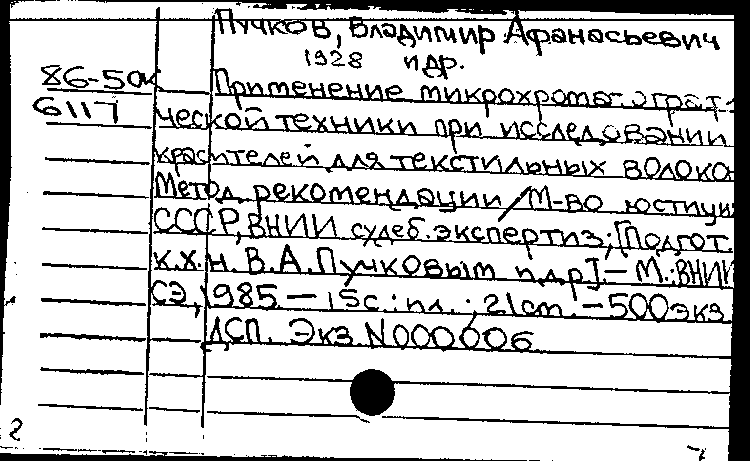 Пучков, Владимир Афанасьевич
1928 и др.
86-5дк Применение микрохроматограф-
6117 ческой техники при исследовании
красителей для текстильных волоко
Метод. рекомендации / М-во юстиции
СССР, ВНИИ судеб. экспертиз; [Подгот.
к.х.н. В.А. Пучковым и др.] – М.: ВНИИ
СЭ, 1985 – 15с.: ил.; 21 см. – 500 экз
ДСП. Экз. N000606
2